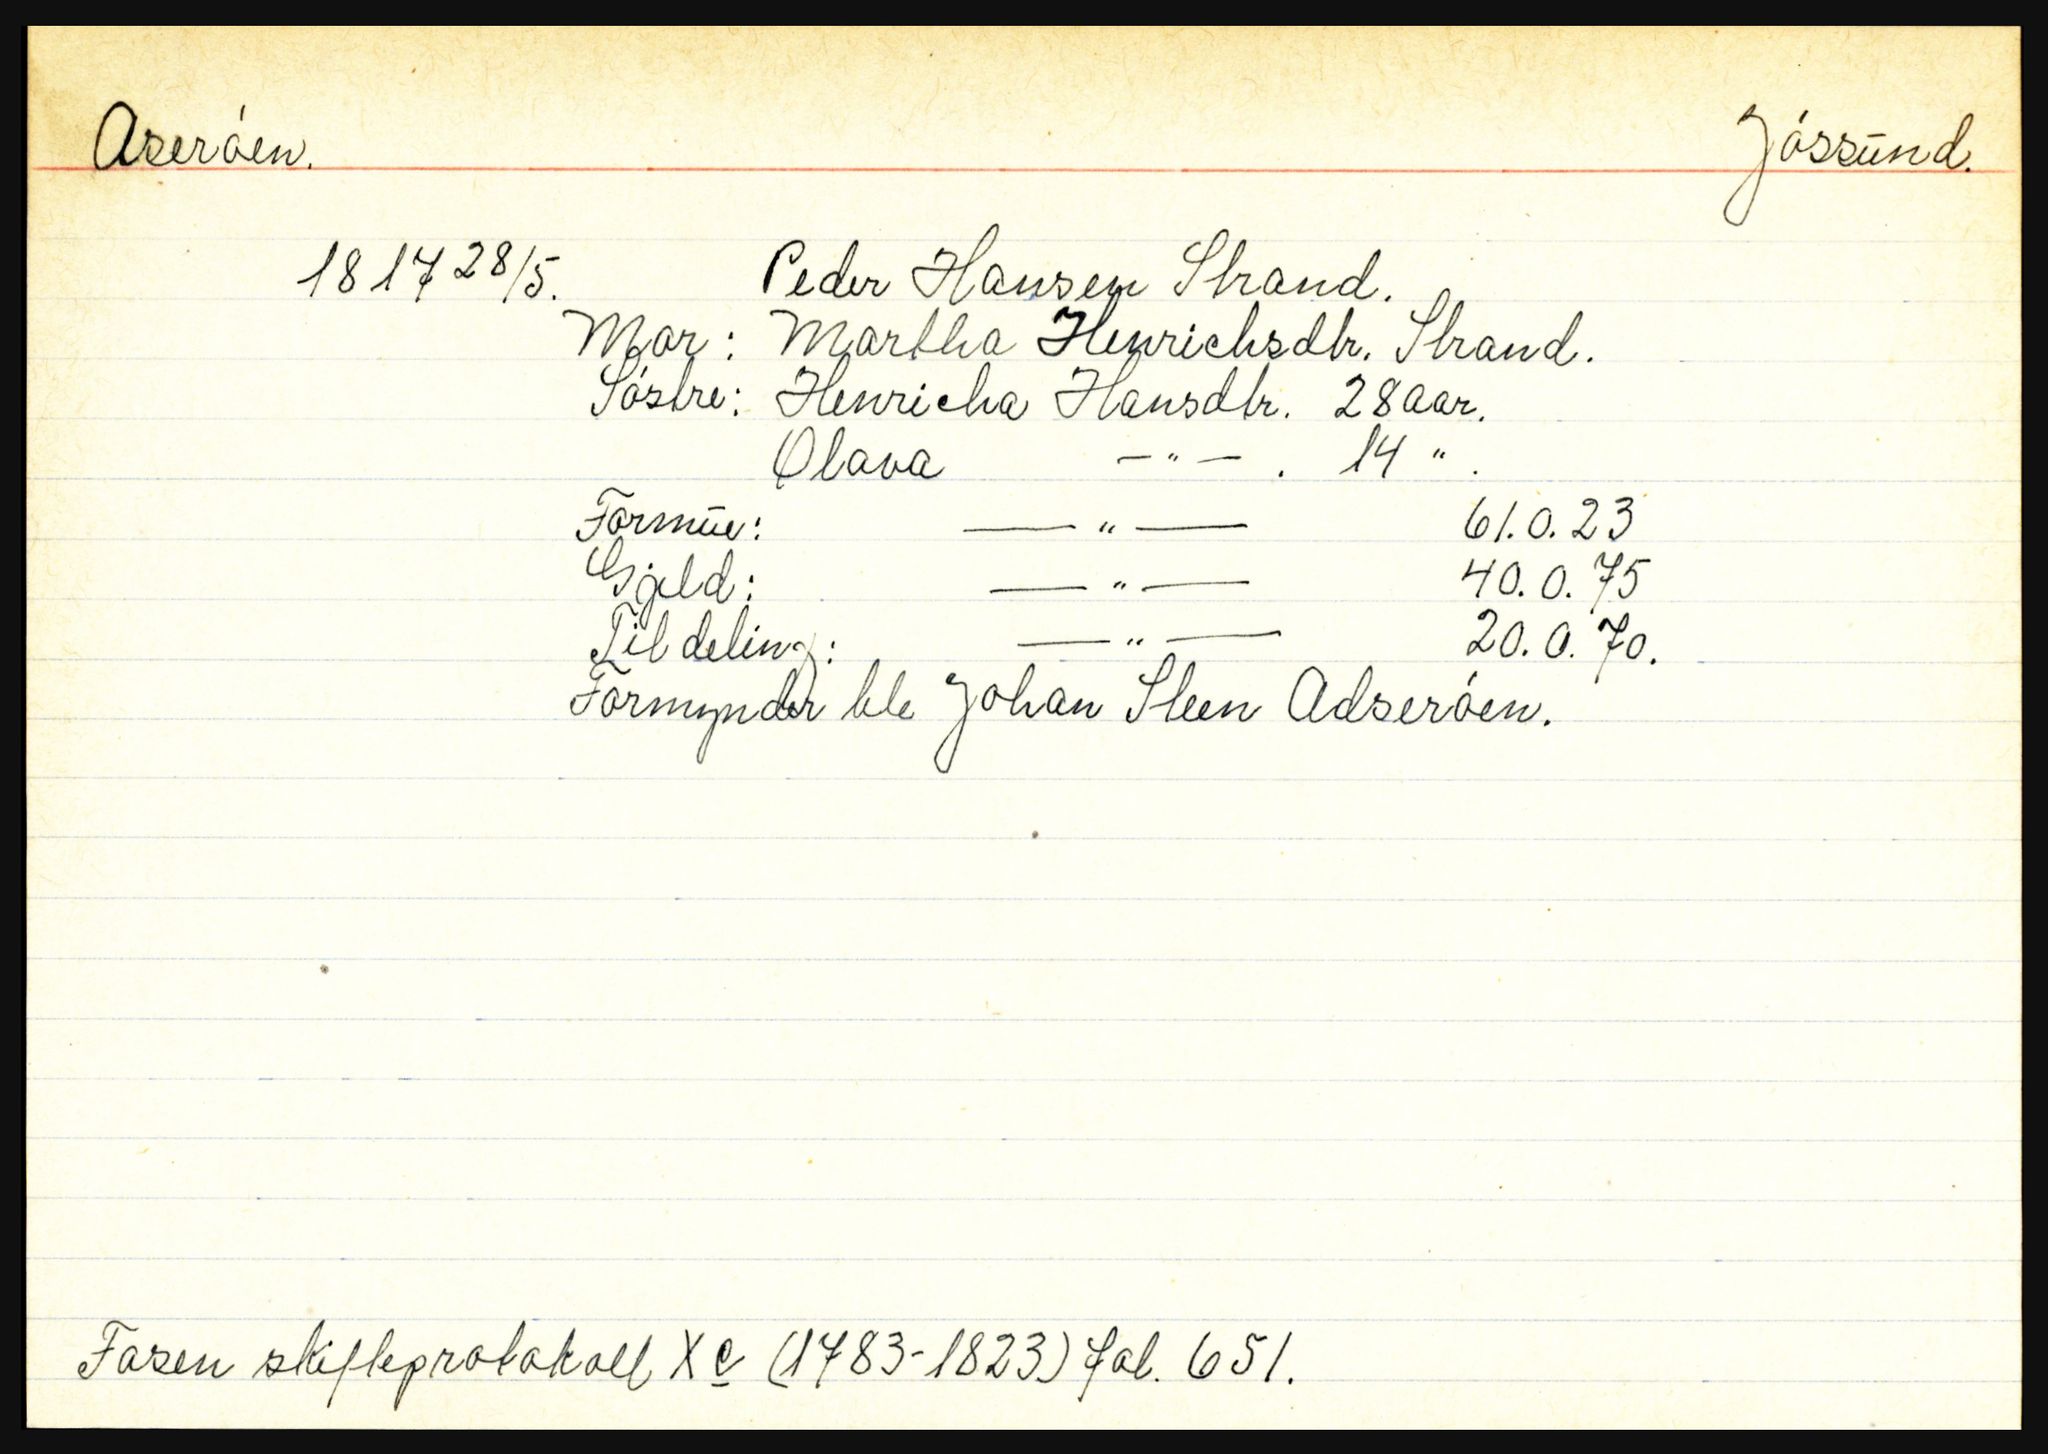 Aserøen. Jøssund.
1817 28/5. Peder Hansen Strand.
Mor: Martha Henrichsdtr. Strand.
Søstre: Henricha Hansdtr. 28 aar.
Olava —"— . 14 " .
Formue: —"— 61.0.23
Gjeld: —"— 40.0.75
Til deling: —"— 20.0.70.
Formynder ble Johan Steen Adserøen.
Fosen skifteprotokoll X c (1783-1823) fol. 651.